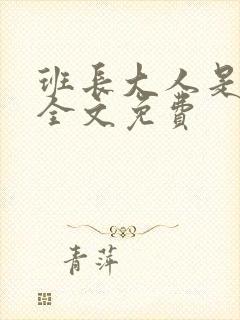 班長大人是
全文免費
青萍